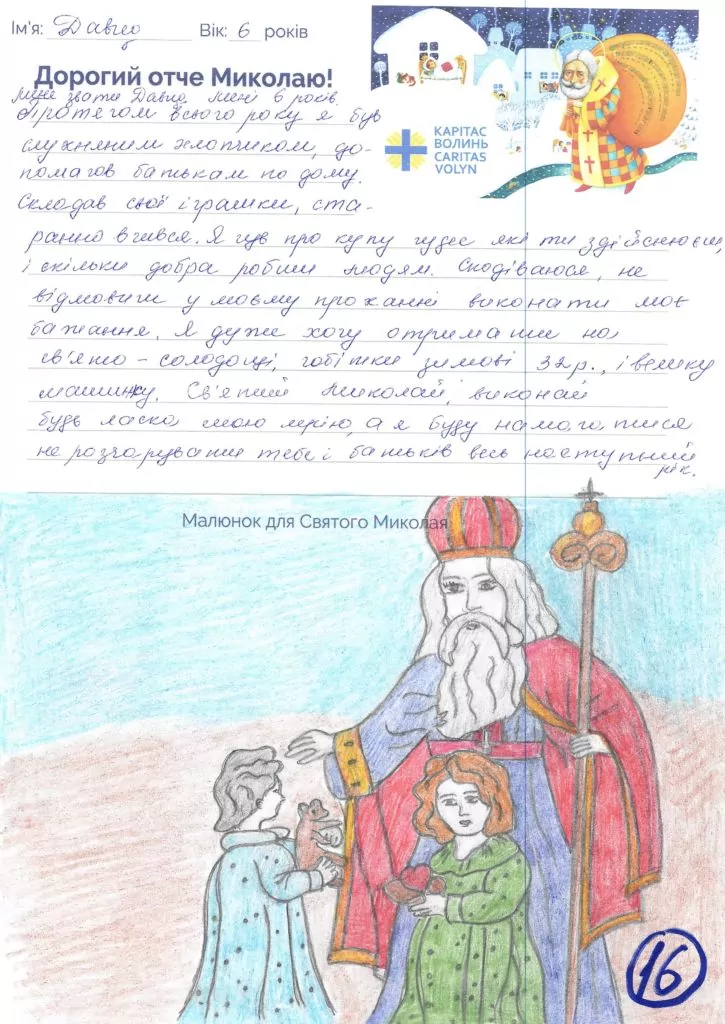 Ім'я: Давид Вік: 6 років
Дорогий отче Миколаю!
КАРІТАС
ВОЛИНЬ
CARITAS
VOLYN
Мене звати Давид. Мені 6 років.
Протягом всього року я був
слухняним хлопчиком, до-
помагав батькам по дому.
Складав свої іграшки, ста-
ранно вчився. Я чув про купу чудес які ти здійснюєш,
і скільки добра робиш людям. Сподіваюся, не
відмовиш у моєму проханні виконати моє
бажання. Я дуже хочу отримати на
свято – солодощі, чобітки зимові 32 р., і велику
машинку. Св'ятий Миколай, виконай
будь ласка мою мрію, а я буду намагатися
не розчарувати тебе і батьків весь наступний
рік.
Малюнок для Святого Миколая
16